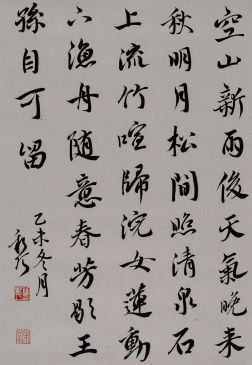 空山新雨後天氣晚来
秋明月松間照清泉石
上流竹喧歸浣女蓮動
下漁舟随意春芳歇王
孫自可留
乙未冬月